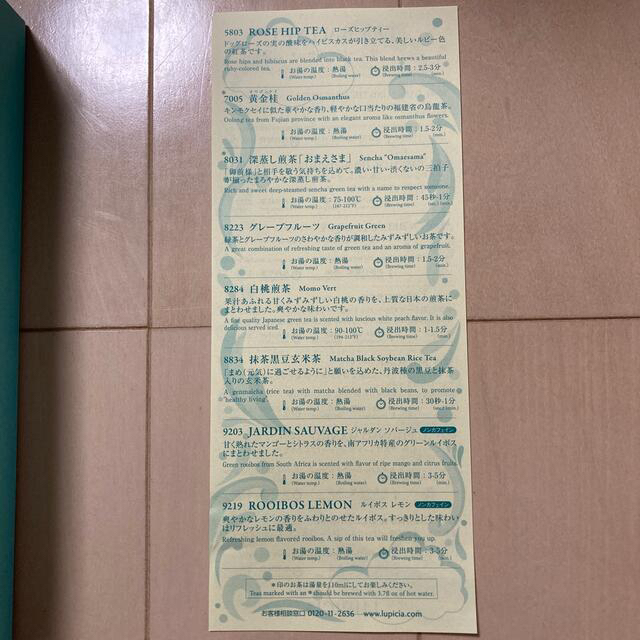 5803 ROSE HIP TEA ローズヒップティー
ドッグローズの実の酸味をハイビスカスが引き立てる、美しいルビー色
の紅茶です。
Rose hips and hibiscus are blended into black tea. This blend brews a beautiful
ruby-colored tea.
お湯の温度：熱湯 浸出時間：2.5-3分
(Water temp.) (Boiling water) (Brewing time) (min.)
7005 黄金桂 Golden Osmanthus
キンモクセイに似た華やかな香り、軽やかな口当たりの福建省の烏龍茶。
Oolong tea from Fujian province with an elegant aroma like osmanthus flowers.
お湯の温度：熱湯 浸出時間：1.5-2分
(Water temp.) (Boiling water) (Brewing time) (min.)
8031 深蒸し煎茶「おまえさま」 Sencha "Omaesama"
「御前様」と相手を敬う気持ちを込めて。濃い・甘い・渋くないの三拍子
が揃ったまろやかな深蒸し煎茶。
Rich and sweet deep-steamed sencha green tea with a name to respect someone.
お湯の温度：75-100℃ 浸出時間：45秒-1分
(Water temp.) (167-212°F) (Brewing time)
8223 グレープフルーツ Grapefruit Green
緑茶とグレープフルーツのさわやかな香りが調和したみずみずしいお茶です。
A great combination of refreshing taste of green tea and an aroma of grapefruit.
お湯の温度：熱湯 浸出時間：1.5-2分
(Water temp.) (Boiling water) (Brewing time) (min.)
8284 白桃煎茶 Momo Vert
果汁あふれる甘くみずみずしい白桃の香りを、上質な日本の煎茶に
まとわせました。爽やかな味わいです。
A fine quality Japanese green tea is scented with luscious white peach flavor. It is also
delicious served iced.
お湯の温度：90-100℃ 浸出時間：1-1.5分
(Water temp.) (194-212°F) (Brewing time) (min.)
8834 抹茶黒豆玄米茶 Matcha Black Soybean Rice Tea
「まめ(元気)に過ごせるように」と願いを込めた、丹波種の黒豆と抹茶
入りの玄米茶。
A genmaicha (rice tea) with matcha blended with black beans, to promote
"healthy living".
お湯の温度：熱湯 浸出時間：30秒-1分
(Water temp.) (Boiling water) (Brewing time)
9203 JARDIN SAUVAGE ジャルダン ソバージュ ノンカフェイン
甘く熟れたマンゴーとシトラスの香りを、南アフリカ特産のグリーンルイボス
にまとわせました。
Green rooibos from South Africa is scented with flavor of ripe mango and citrus fruits.
お湯の温度：熱湯 浸出時間：3-5分
(Water temp.) (Boiling water) (Brewing time) (min.)
9219 ROOIBOS LEMON ルイボス レモン ノンカフェイン
爽やかなレモンの香りをふわりとのせたルイボス。すっきりとした味わい
はリフレッシュに最適。
Refreshing lemon flavored rooibos. A sip of this tea will freshen you up.
お湯の温度：熱湯 浸出時間：3-5分
(Water temp.) (Boiling water) (Brewing time) (min.)
＊印のお茶は湯量を110mlにしてお楽しみください。
Teas marked with an ＊should be brewed with 3.7fl oz of hot water.
お客様相談窓口 0120-11-2636 www.lupicia.com